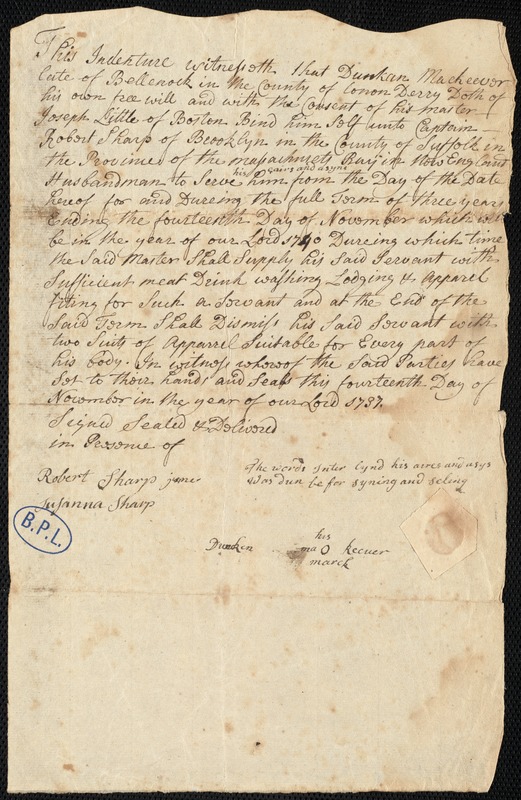 This Indenture witnesseth that Dunkan Mackeever
late of Bellenock in the County of Conon Derry Doth of
his own free will and with the Consent of his master
Joseph Little of Boston Bind him Self unto Captain
Robert Sharp of Brooklyn in the County of Suffolk in
the Province of the massachusets Bay in New England
his eairs and asyns
Husbandman to Serve him from the Day of the Date
hereof for and Dureing the full Term of three years
Ending the fourteenth Day of November which will
be in the year of our Lord 1740 Dureing which time
the Said Master Shall Supply his said Servant with
Sufficient meat Drink washing Lodging & Apparel
fiting for Such a Servant and at the End of the
Said Term Shall Dismiss his Said Servant with
two Suits of Apparril Suitable for Every part of
his body. In witness whereof the Said Parties have
Set to their hands and Seals this fourteenth Day of
November in the year of our Lord 1737.
Signd Sealed & Delivered
in Presence of
The words Inter Lynd his aires and asys
Was dun be for syning and seling
Robert Sharp juner
Susanna Sharp
B.P.L.
his
Dunken ma O keever
marck